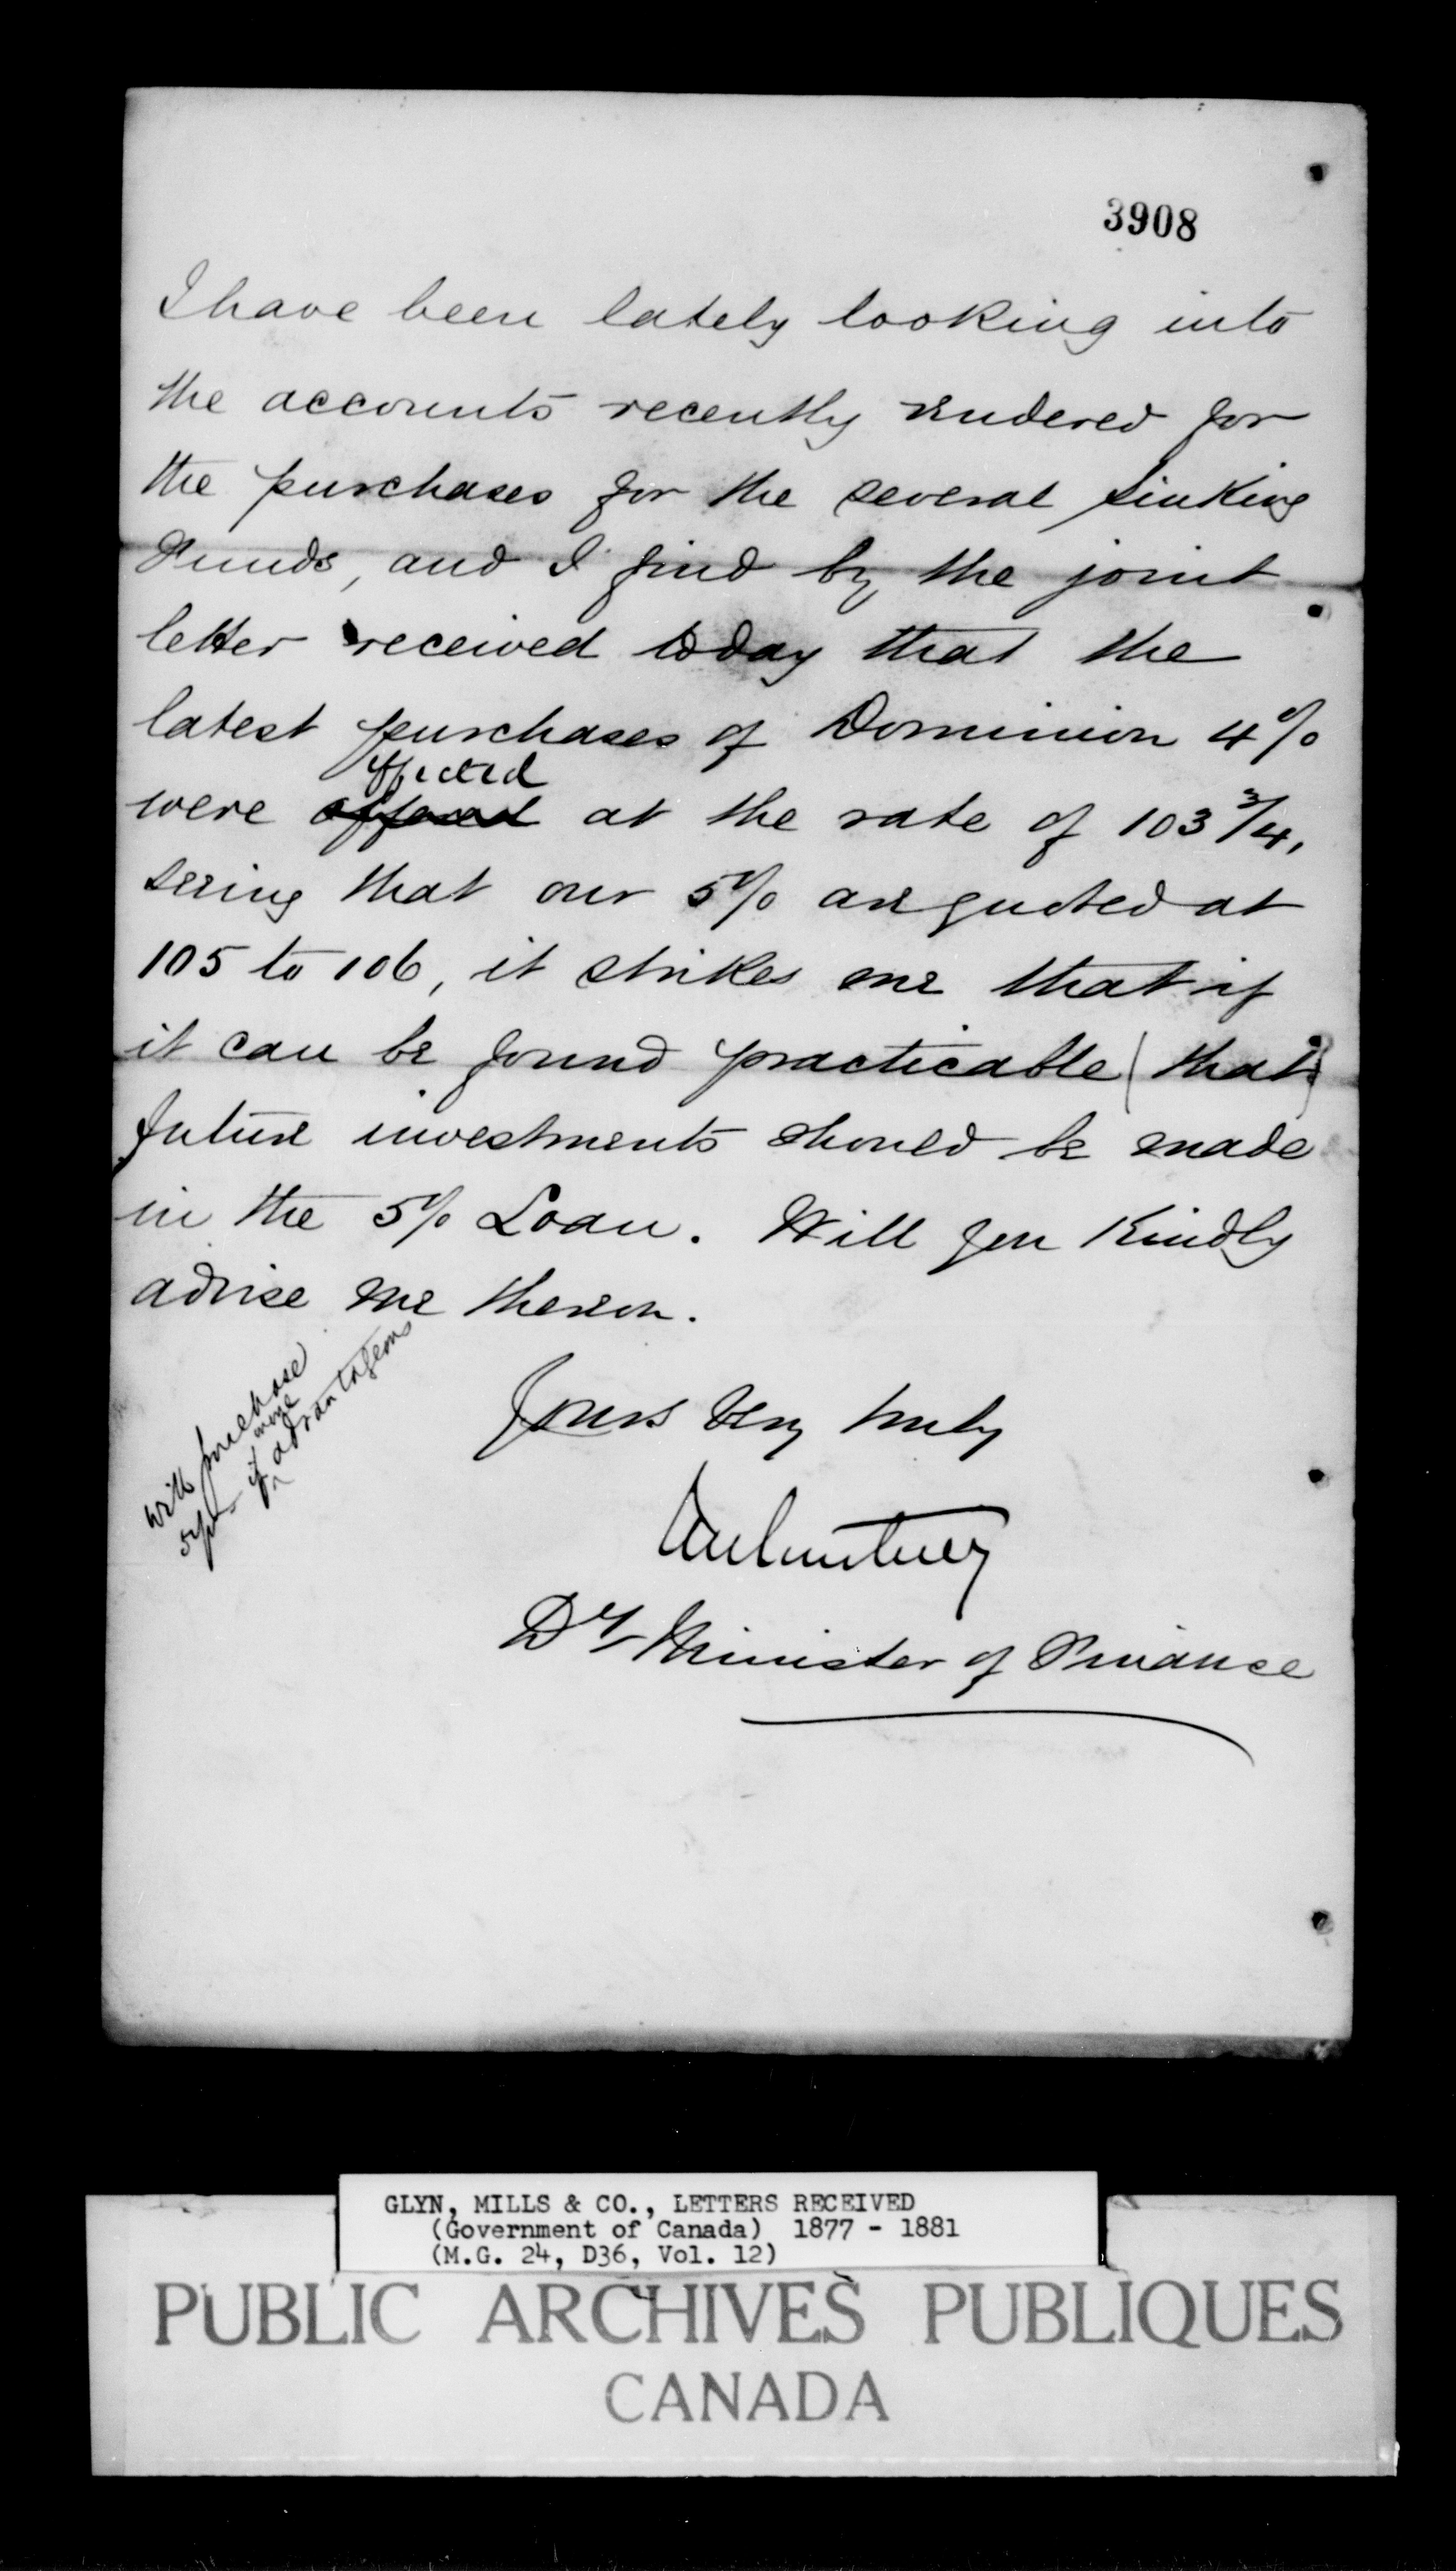 3908
I have been lately looking into
the accounts recently rendered for
the purchases for the several sinking
Funds, and I find by the joint
letter received today that the
latest purchases of Dominion 4%
effected
were offered at the rate of 103 3/4,
seeing that our 5% are quoted at
105 to 106, it strikes me that if
it can be found practicable (that)
future investments should be made
in the 5% Loan. Will you kindly
advise me thereon.
Will purchase
more
if advantageous
Yours very truly
Dy Minister of Finance
GLYN, MILLS & CO., LETTERS RECEIVED
(Government of Canada) 1877 - 1881
(M.G. 24, D36, Vol. 12)
PUBLIC ARCHIVES PUBLIQUES
CANADA